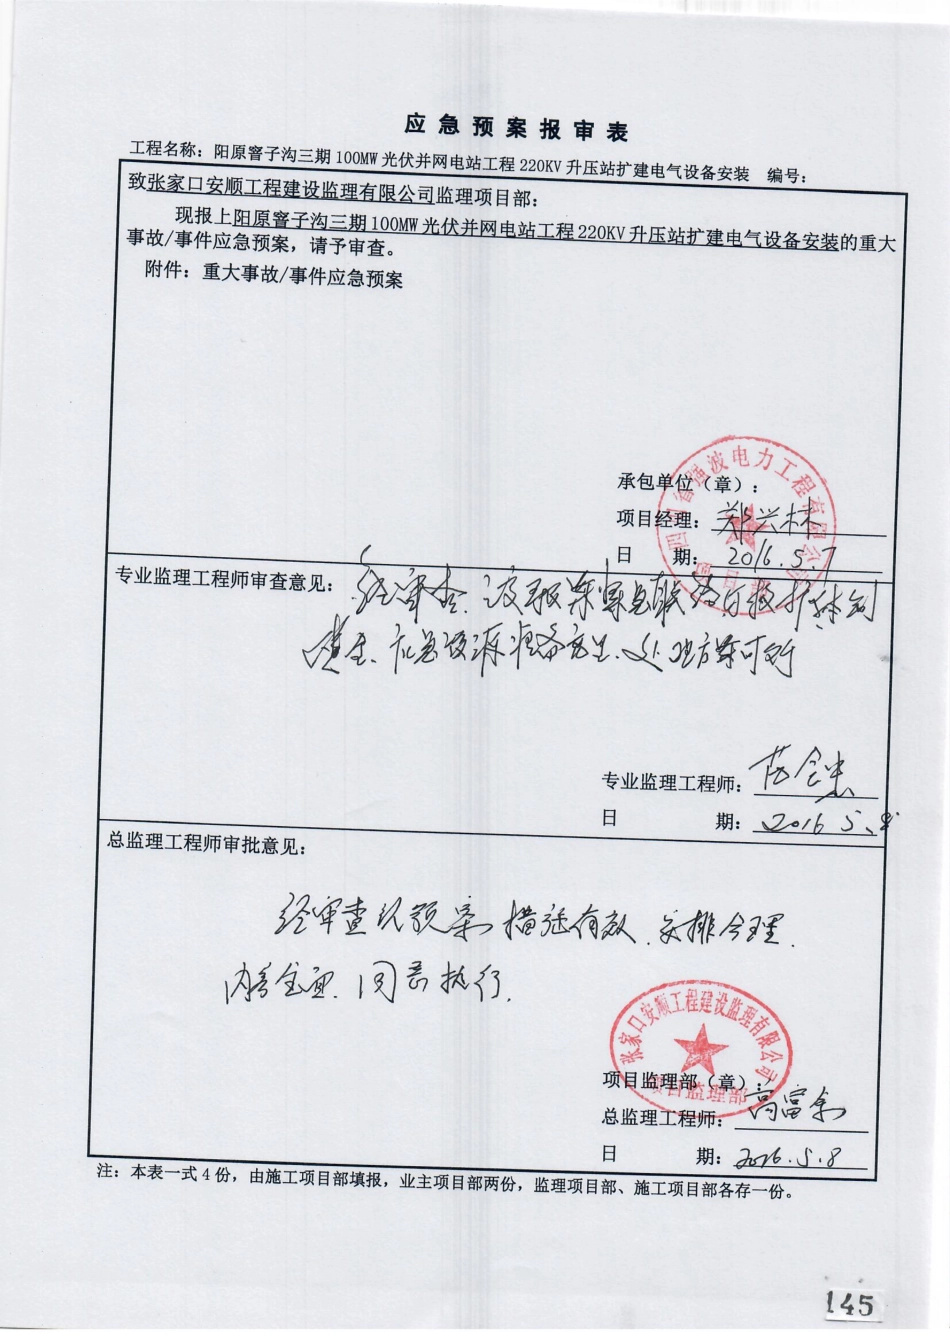 应急预案报审表
工程名称：阳原窨子沟三期100MW光伏并网电站工程220KV升压站扩建电气设备安装 编号：
致张家口安顺工程建设监理有限公司监理项目部：
现报上阳原窨子沟三期100MW光伏并网电站工程220KV升压站扩建电气设备安装的重大
事故/事件应急预案，请予审查。
附件：重大事故/事件应急预案
四川省强波电力工程有限公司
承包单位（章）：
项目经理：郑兴林
日 期：2016.5.7
专业监理工程师审查意见：经审查，该报
应急资源准备充足、处理方案可行
专业监理工程师：
日 期：2016 5.8
总监理工程师审批意见：
经审查预案措施有效、安排合理、
内容全面、同意执行。
张家口安顺工程建设监理有限公司
项目监理部
项目监理部（章）：
总监理工程师：高富余
日 期：2016.5.8
注：本表一式4份，由施工项目部填报，业主项目部两份，监理项目部、施工项目部各存一份。
145